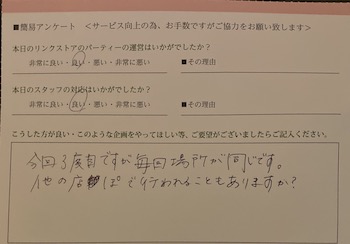 ■簡易アンケート <サービス向上の為、お手数ですがご協力をお願い致します>
本日のリンクストアのパーティーの運営はいかがでしたか?
非常に良い・良い・悪い・非常に悪い ■その理由
本日のスタッフの対応はいかがでしたか?
非常に良い・良い・悪い・非常に悪い ■その理由
こうした方が良い・このような企画をやってほしい等、ご要望がございましたらご記入ください。
今回3度目ですが毎回場所が同じです。
他の店ぽで行われることもありますか?